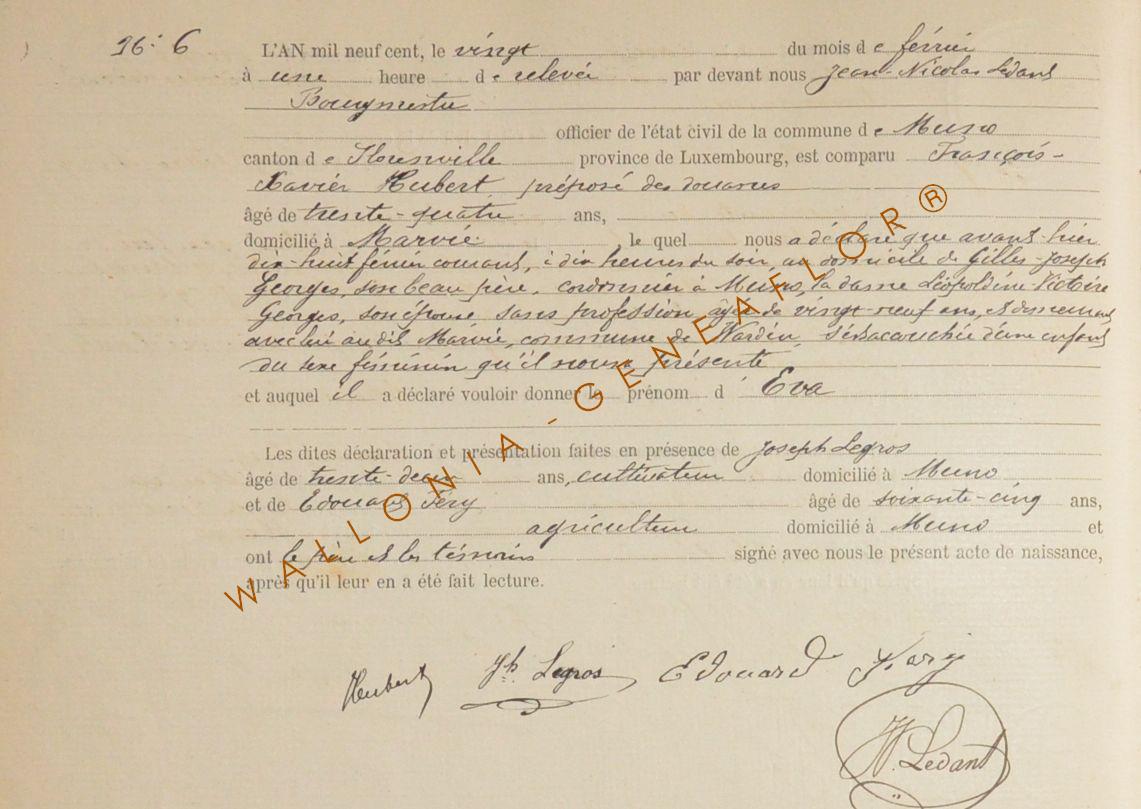 N°: 6
L'AN mil neuf cent, le vingt du mois de février
à une heure de relevée par devant nous Jean-Nicolas Ledant
Bourgmestre
officier de l'état civil de la commune de Muno
canton de Florenville province de Luxembourg, est comparu François-
Xavier Hubert préposé des douanes
âgé de trente-quatre ans,
domicilié à Marvie le quel nous a déclaré que avant-hier
dix-huit février courant, à dix heures du soir, au domicile de Gilles-Joseph
Georges, son beau père, cordonnier à Muno, la dame Léopoldine-Victoire
Georges, son épouse sans profession âgée de vingt neuf ans, et demeurant
avec lui au dit Marvie, commune de Wardin, s'est accouchée d'un enfant
du sexe féminin qu'il nous présente
et auquel il a déclaré vouloir donner le prénom d' Eva
Les dites déclaration et présentation faites en présence de Joseph Legros
âgé de trente-deux ans, cultivateur domicilié à Muno
et de Edouard Féry âgé de soixante-cinq ans,
agriculteur domicilié à Muno et
ont le père et les témoins signé avec nous le présent acte de naissance,
après qu'il leur en a été fait lecture.
Hubert Jh. Legros Edouard Féry
Ledant
WALLONIA - GENEAFLOR®